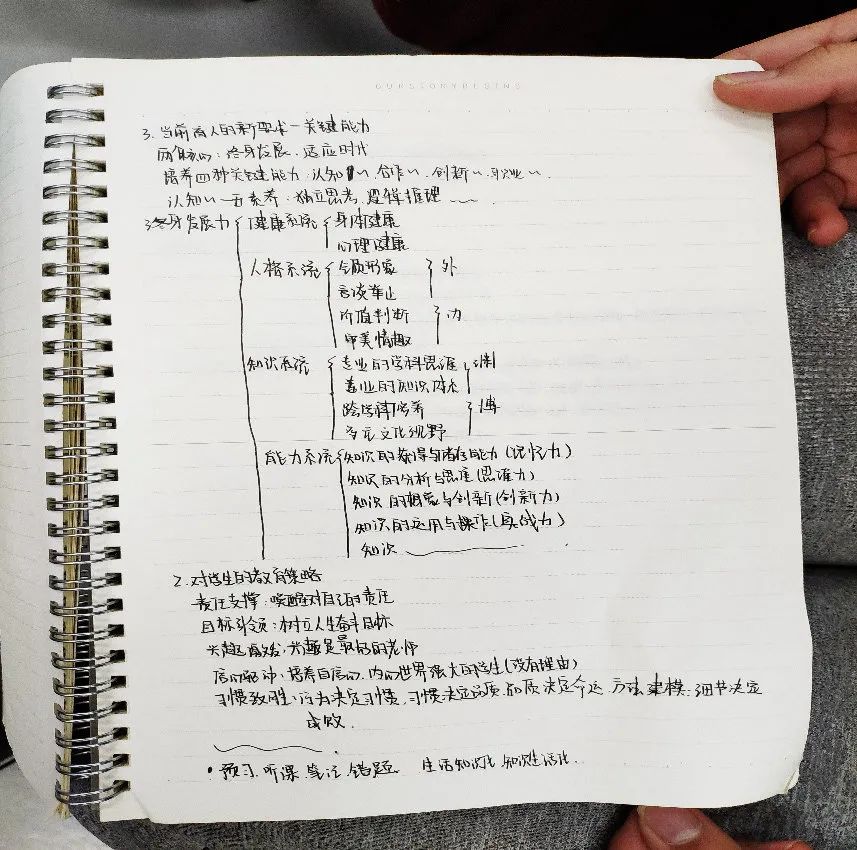 OURSTORYBEGINS
3. 当前育人的新要求-关键能力
两个核心:终身发展、适应时代
培养四种关键能力,认知〃、合作〃、创新〃、职业〃
认知〃-五素养:独立思考,逻辑推理
3终身发展力 健康系统 身体健康
心理健康
人格系统 气质形象 外
言谈举止
价值判断 内
审美情趣
知识系统 专业的学科思维 渊
专业的知识
跨学科培养 博
多元文化视野
能力系统 知识的获得与储存能力(记忆力)
知识的分析与思维(思维力)
知识的想象与创新(创新力)
知识的运用与操作(实战力)
知识
2. 对学生的教育策略
责任支撑:唤醒对自己的责任
目标引领:树立人生奋斗目标
兴趣激发:兴趣是最好的老师
信心驱动:培养自信心,内心世界强大的学生(没有理由)
习惯致胜:行为决定习惯,习惯决定品质,品质决定命运,方法建模:细节决定
成败.
·预习、听课、笔记、错题. 生活知识化 知识生活化.